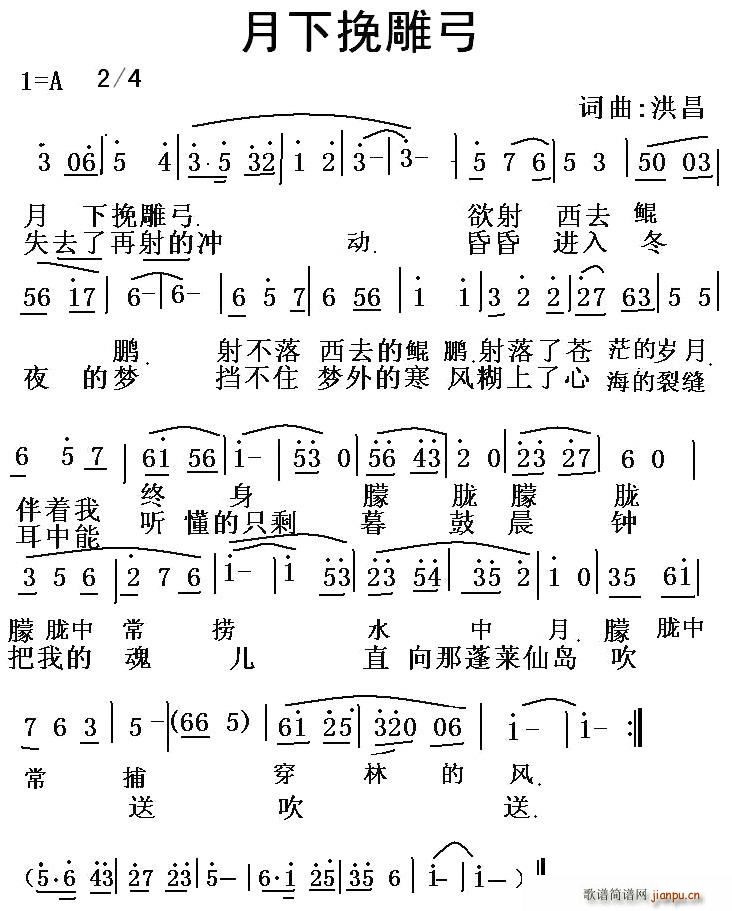 月下挽雕弓
1=A 2/4
词曲:洪昌
3 06 | 5 4 | 3·5 32 | 1 2 | 3- | 3- | - | 5 7 6 | 5 5 3 | 50 03 |
月 下挽雕弓. 欲射 西去 鲲
失去了再射的冲 动. 昏昏 进入 冬
56 17 | 6- | 6- | 6 5 7 | 6 56 | 1 1 | 3 2 2 | 27 63 | 5 5 |
鹏. 射不落 西去的鲲 鹏.射落了苍 茫的岁月.
夜 的梦 挡不住 梦外的寒 风糊上了心 海的裂缝
6 5 7 | 61 56 | 1- | 53 0 | 56 43 | 2 0 | 23 27 | 6 0 |
伴着我 终 身 朦 胧 朦 胧
耳中能 听 懂的只剩 暮 鼓 晨 钟
3 5 6 | 2 7 6 | 1- | 1 53 | 23 54 | 35 2 | 1 0 | 35 61 |
朦 胧中 常 捞 水 中 月.朦 胧中
把我的 魂 儿 直 向那蓬莱仙岛 吹
7 6 3 | 5- | (66 5) | 61 25 | 320 06 | 1- | 1- :‖
常 捕 穿 林 的 风.
送 吹 送.
(5·6 43 | 27 23 | 5- | 6·1 25 | 35 6 | 1- | 1-) ‖
歌谱简谱网
jianpu.cn